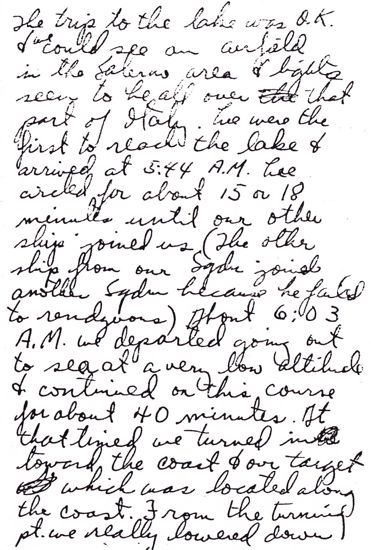 The trip to the lake was O.K.
& we could see an airfield
in the Salerno area & lights
seem to be all over the that
part of Italy. We were the
first to reach the lake &
arrived at 5:44 A.M. We
circled for about 15 or 18
minutes until our other
ship joined us (The other
ship from our Sqdn joined
another Sqdn because he failed
to rendzvous) About 6:03
A.M. we departed going out
to sea at a very low altitude
& continued on this course
for about 40 minutes. At
that timed we turned in
toward the coast & our target
which was located along
the coast. From the turning
pt. we really lowered down